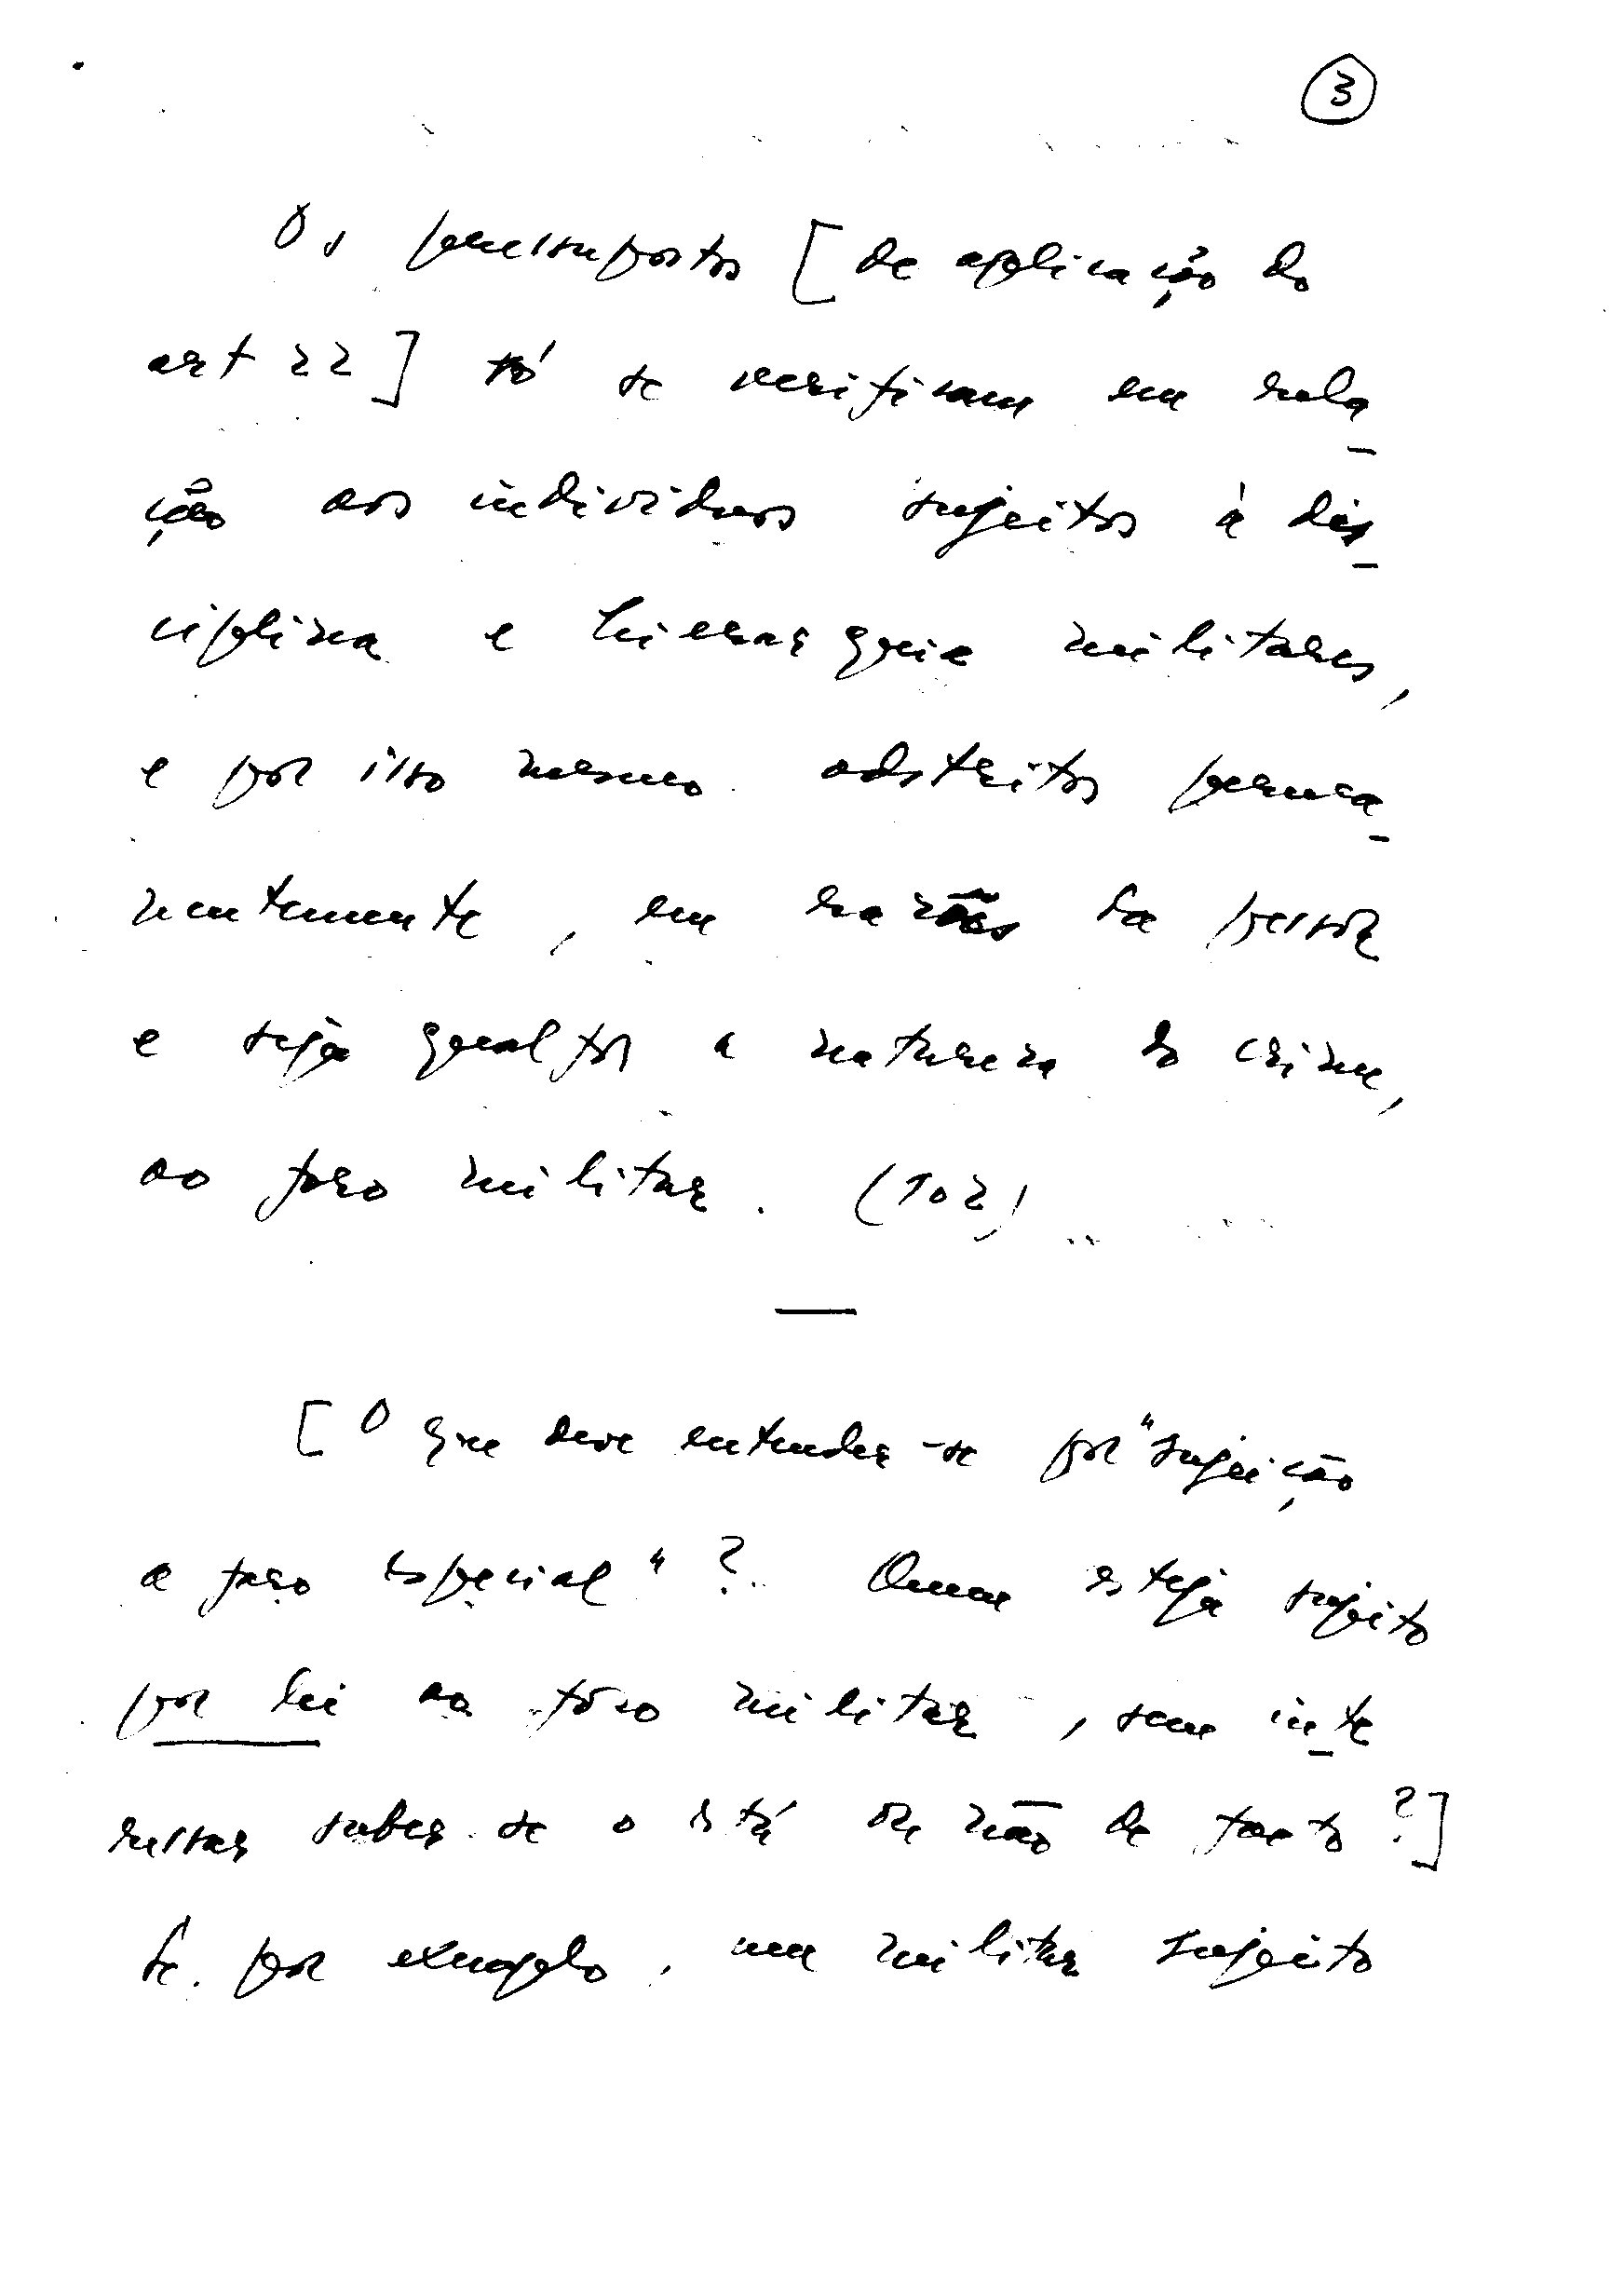 3
Os pressupostos [de aplicação do
art 22] só se verificam em rela-
ção aos individuos sujeitos à dis-
ciplina e hierarquia militares,
e por isso mesmo adstritos perma-
nentemente, em razão da pessoa
e seja qual for a natureza do crime,
ao foro militar. (102)
[O que deve entender-se por "sujeição
a foro especial"? Quem esteja sujeito
por lei ao fôro militar, sem inte-
ressar saber se o está ou não de facto?]
Se, por exemplo, um militar sujeito